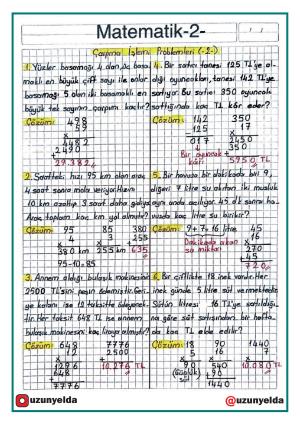 Matematik-2-
Çarpma İşlemi Problemleri (-2-)
1. Yüzler basamağı 4 olan, üç basa-
maklı en büyük çift sayı ile onlar
basamağı 5 olan iki basamaklı en
büyük tek sayının çarpımı kaçtır?
Çözüm:
498
59
x
4482
2490
+
29.382
2. Saatteki hızı 95 km olan araç
4 saat sonra mola veriyor. Hızını
10 km azaltıp 3 saat daha gidiyor.
Araç toplam kaç km yol almıştır?
Çözüm:
95 85 380
x 4 x 3 +255
380 km 255 km 635
95-10=85
3. Annem aldığı bulaşık makinesinin
2500 TL'sini peşin ödemiştir. Geri-
ye kalanı ise 12 taksitte ödeyecek-
tir. Her taksit 648 TL ise annem
bulaşık makinesini kaç liraya almıştır?
Çözüm:
648 7776
x 12 2500
+
1296 10.276 TL
648
+
7776
4. Bir satıcı, tanesi 125 TL'ye al-
dığı oyuncakları, tanesi 142 TL'ye
satıyor. Bu satıcı 350 oyuncak
sattığında kaç TL kâr eder?
Çözüm:
142 350
-125 x 17
017 2450
350
+
Bir oyuncak
kârı
5950 TL
5. Bir havuza bir dakikada biri 9,
diğeri 7 litre su akıtan iki musluk
aynı anda açılıyor. 45 dk sonra ha-
vuzda kaç litre su birikir?
Çözüm:
9+7=16 litre
Dakikada akan
su miktarı
45
x 16
270
+45
720
6. Bir çiftlikte 18 inek vardır. Her
inek günde 5 litre süt vermektedir.
Sütün litresi 16 TL'ye satıldığı-
na göre süt satışından bir hafta-
da kaç TL elde edilir?
Çözüm:
18 90 1440
x 5 x 16 x 7
90 540 10.080 TL
(Günlük süt)
+90
1440
uzunyelda
@uzunyelda